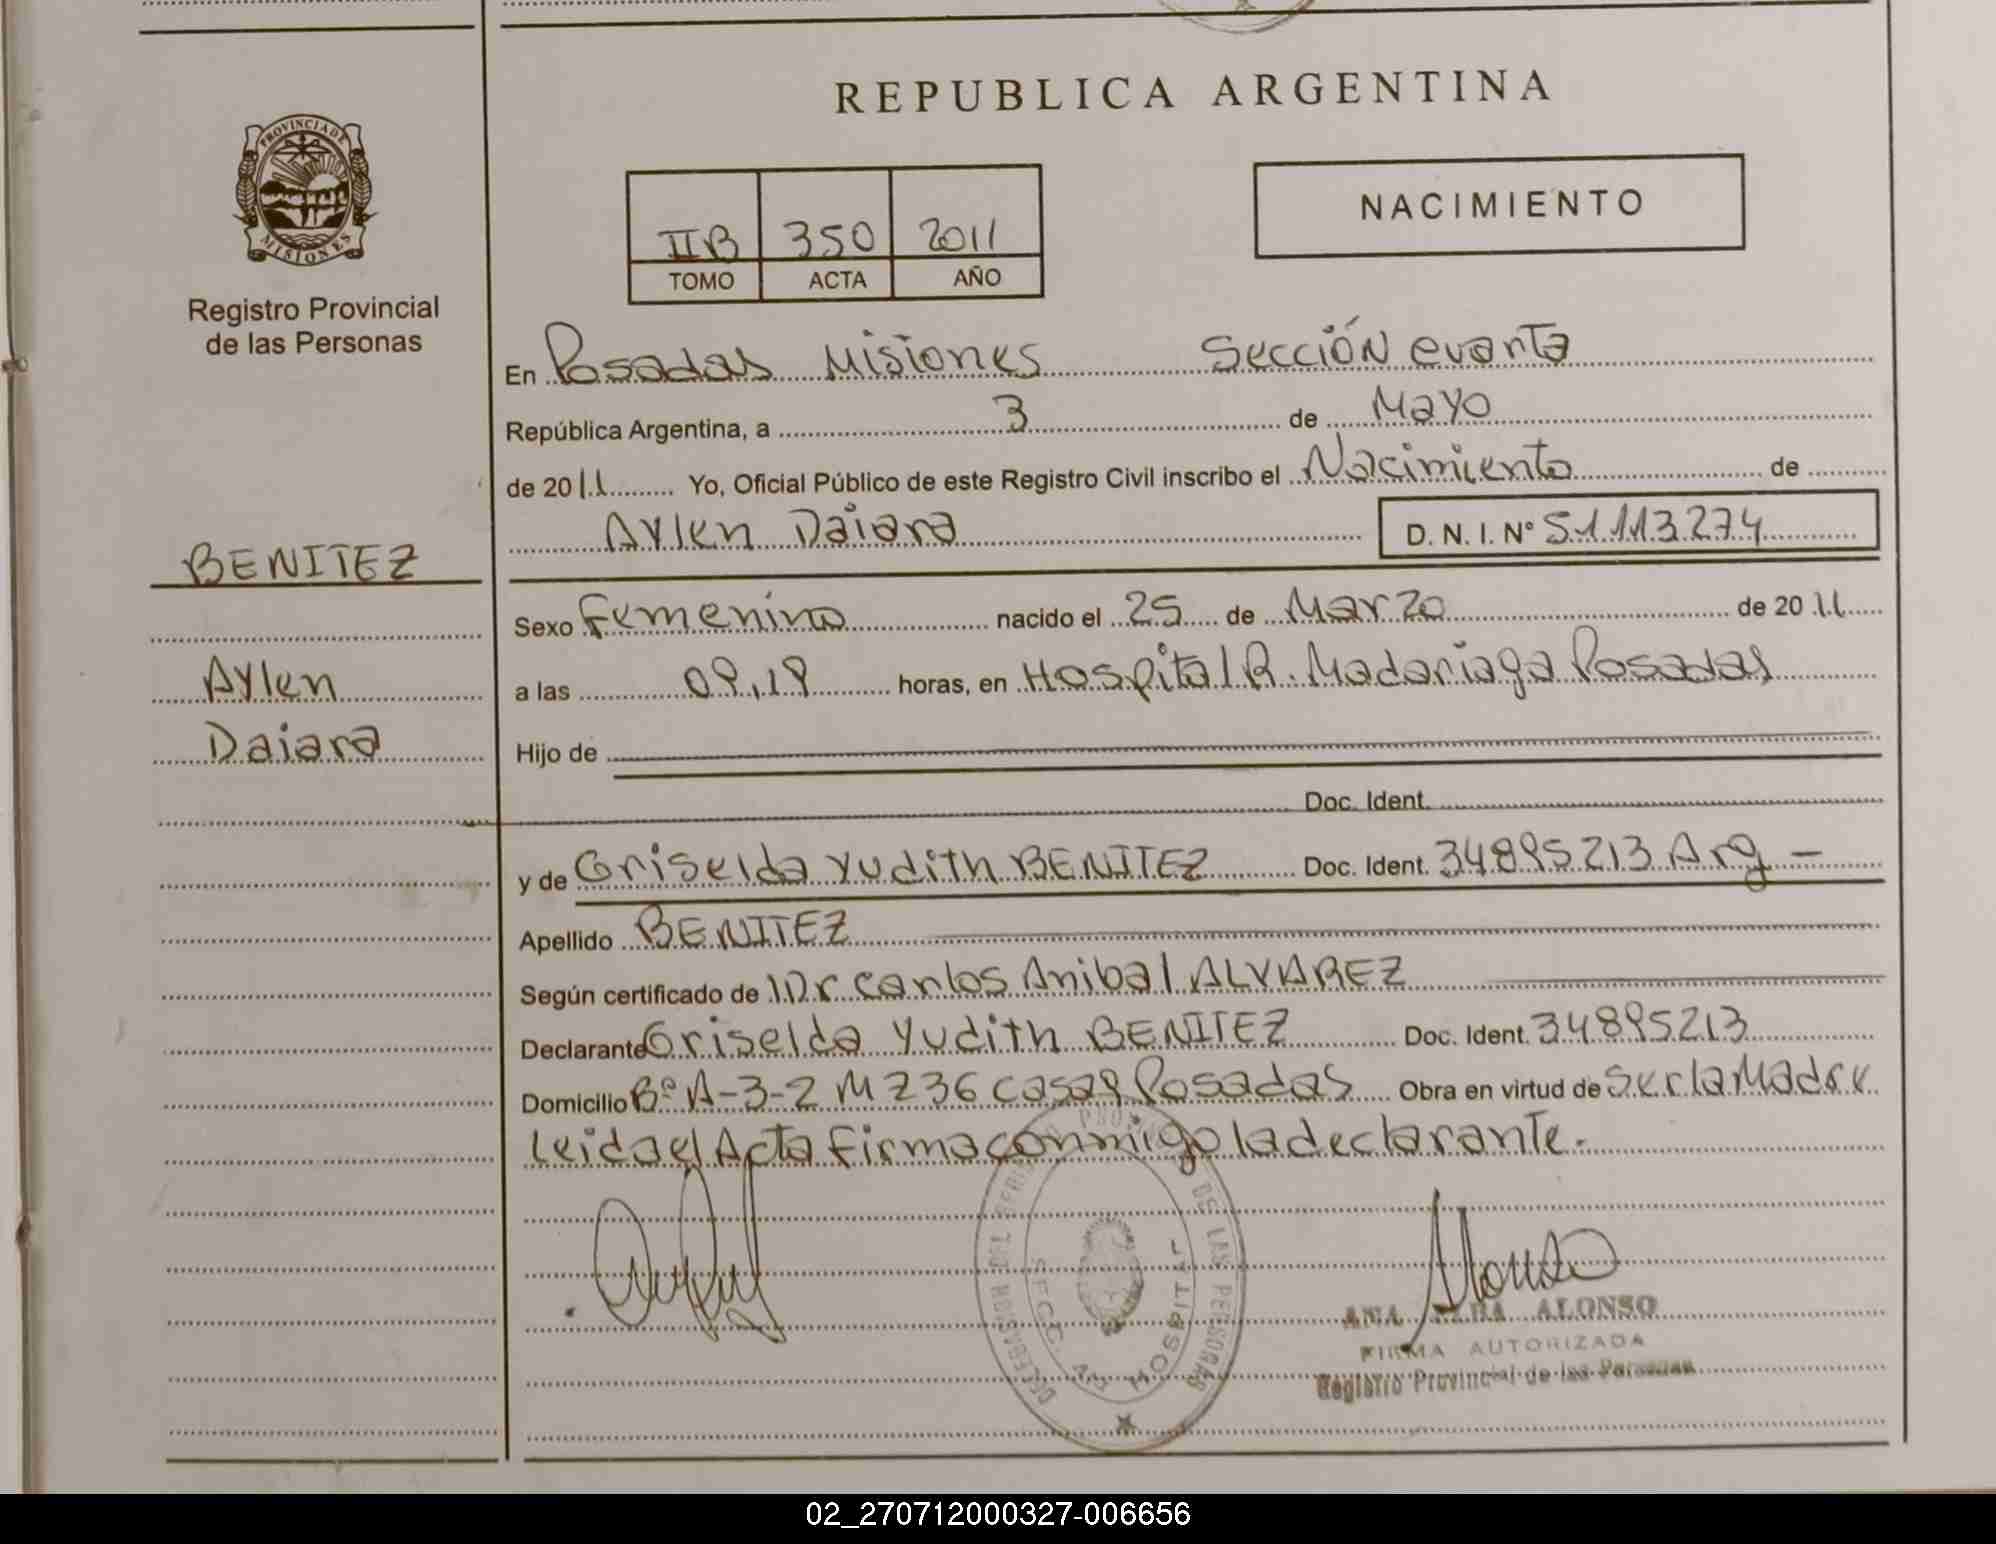 REPUBLICA ARGENTINA
PROVINCIA DE
MISIONES
Registro Provincial
de las Personas
NACIMIENTO
IIB 350 2011
TOMO ACTA AÑO
En Posadas Misiones Sección cuarta
República Argentina, a 3 de Mayo
de 2011 Yo, Oficial Público de este Registro Civil inscribo el Nacimiento de
Aylen Daiara D. N. I. N° 51113274
BENITEZ
Aylen
Daiara
Sexo Femenino nacido el 25 de Marzo de 2011
a las 09,19 horas, en Hospital R. Madariaga Posadas
Hijo de
Doc. Ident.
y de Griselda Yudith BENITEZ Doc. Ident. 34895213 Arg –
Apellido BENITEZ
Según certificado de Dr Carlos Anibal ALVAREZ
Declarante Griselda Yudith BENITEZ Doc. Ident. 34895213
Domicilio Bº A-3-2 MZ 36 casa 9 Posadas Obra en virtud de ser la Madre
leida el Acta firma conmigo la declarante.
DE LAS PERSONAS
SECC. HOSPITAL
Alonso
ANA ALONSO
FIRMA AUTORIZADA
Registro Provincial de las Personas
02_270712000327-006656